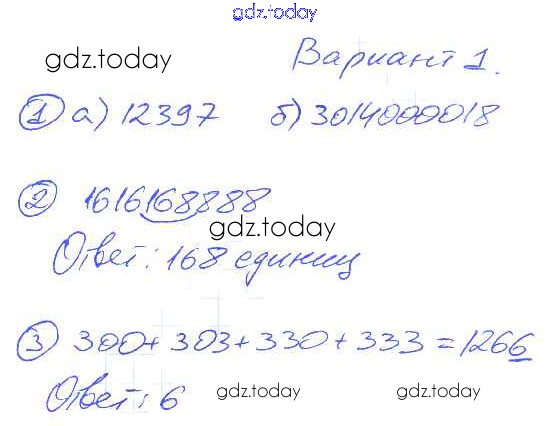 gdz.today
gdz.today
Вариант 1.
1 а) 12397 б) 3014000018
2 1616168888
gdz.today
Ответ: 168 единиц
3 300+303+330+333=1266
Ответ: 6 gdz.today gdz.today